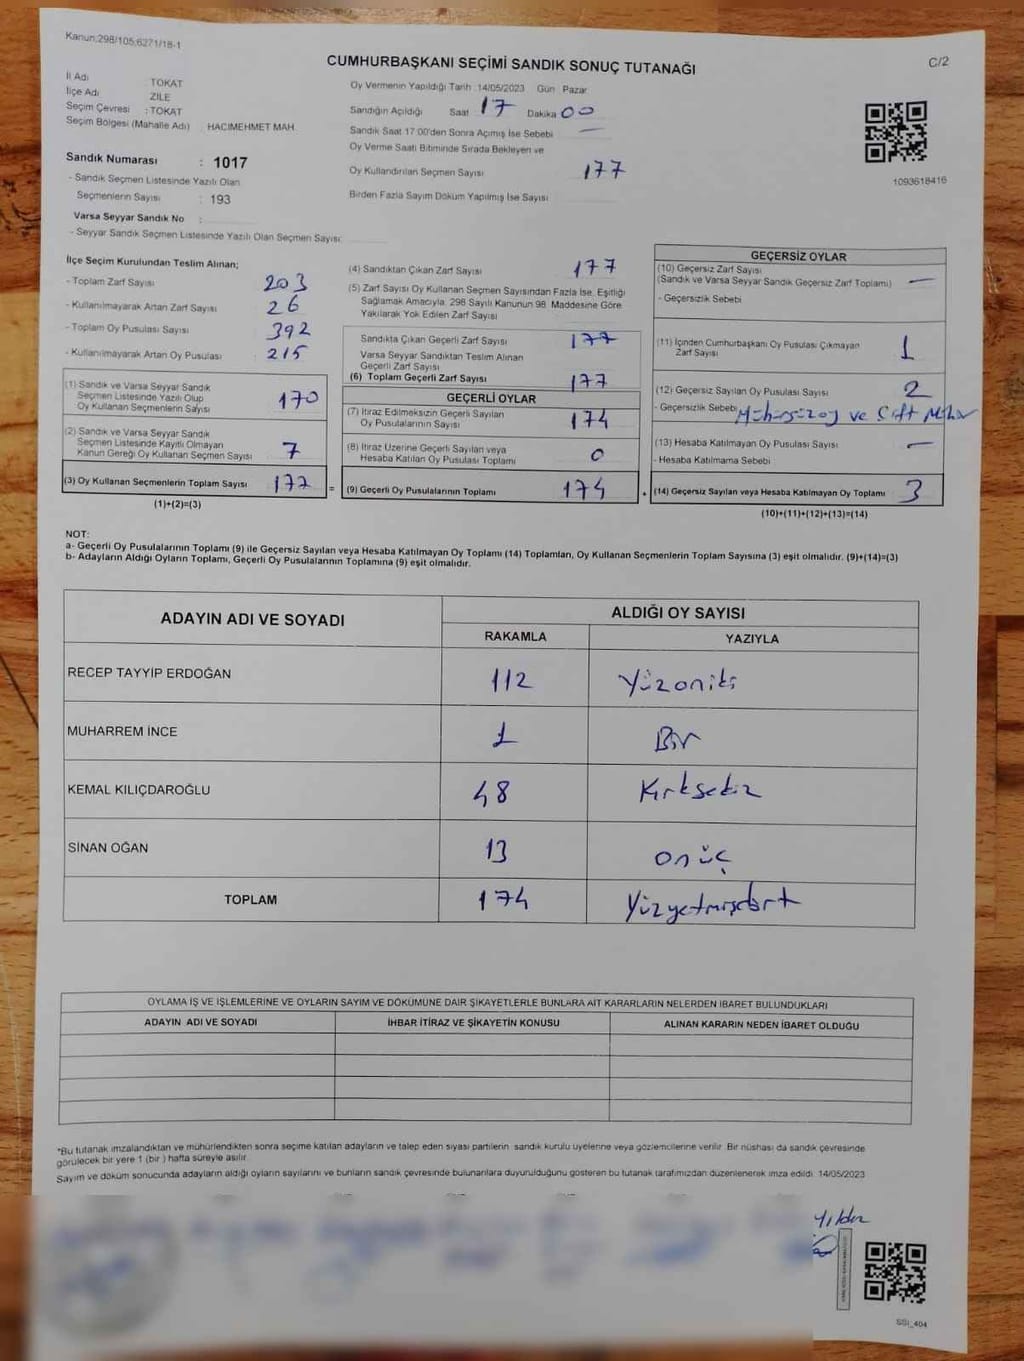 Kanun:298/105;6271/18-1
CUMHURBAŞKANI SEÇİMİ SANDIK SONUÇ TUTANAĞI
C/2
İl Adı : TOKAT
İlçe Adı : ZİLE
Seçim Çevresi : TOKAT
Seçim Bölgesi (Mahalle Adı) : HACIMEHMET MAH.
Sandık Numarası : 1017
- Sandık Seçmen Listesinde Yazılı Olan
Seçmenlerin Sayısı : 193
Varsa Seyyar Sandık No :
- Seyyar Sandık Seçmen Listesinde Yazılı Olan Seçmen Sayısı:
Oy Vermenin Yapıldığı Tarih :14/05/2023 Gün : Pazar
Sandığın Açıldığı Saat 17 Dakika 00
Sandık Saat 17:00'den Sonra Açımış İse Sebebi —
Oy Verme Saati Bitiminde Sırada Bekleyen ve
Oy Kullandırılan Seçmen Sayısı 177
Birden Fazla Sayım Döküm Yapılmış İse Sayısı
1093618416
İlçe Seçim Kurulundan Teslim Alınan;
- Toplam Zarf Sayısı 203
- Kullanılmayarak Artan Zarf Sayısı 26
- Toplam Oy Pusulası Sayısı 392
- Kullanılmayarak Artan Oy Pusulası 215
(1) Sandık ve Varsa Seyyar Sandık
Seçmen Listesinde Yazılı Olup
Oy Kullanan Seçmenlerin Sayısı 170
(2) Sandık ve Varsa Seyyar Sandık
Seçmen Listesinde Kayıtlı Olmayan
Kanun Gereği Oy Kullanan Seçmen Sayısı 7
(3) Oy Kullanan Seçmenlerin Toplam Sayısı 177
(1)+(2)=(3)
(4) Sandıktan Çıkan Zarf Sayısı 177
(5) Zarf Sayısı Oy Kullanan Seçmen Sayısından Fazla İse, Eşitliği
Sağlamak Amacıyla, 298 Sayılı Kanunun 98. Maddesine Göre
Yakılarak Yok Edilen Zarf Sayısı
Sandıkta Çıkan Geçerli Zarf Sayısı 177
Varsa Seyyar Sandıktan Teslim Alınan
Geçerli Zarf Sayısı
(6) Toplam Geçerli Zarf Sayısı 177
GEÇERLİ OYLAR
(7) İtiraz Edilmeksizin Geçerli Sayılan
Oy Pusulalarının Sayısı 174
(8) İtiraz Üzerine Geçerli Sayılan veya
Hesaba Katılan Oy Pusulası Toplamı 0
= (9) Geçerli Oy Pusulalarının Toplamı 174
GEÇERSİZ OYLAR
(10) Geçersiz Zarf Sayısı
(Sandık ve Varsa Seyyar Sandık Geçersiz Zarf Toplamı) —
- Geçersizlik Sebebi
(11) İçinden Cumhurbaşkanı Oy Pusulası Çıkmayan
Zarf Sayısı 1
(12) Geçersiz Sayılan Oy Pusulası Sayısı 2
- Geçersizlik Sebebi Mühürsüz oy ve Çift Mühür
(13) Hesaba Katılmayan Oy Pusulası Sayısı —
- Hesaba Katılmama Sebebi
+ (14) Geçersiz Sayılan veya Hesaba Katılmayan Oy Toplamı 3
(10)+(11)+(12)+(13)=(14)
NOT:
a- Geçerli Oy Pusulalarının Toplamı (9) ile Geçersiz Sayılan veya Hesaba Katılmayan Oy Toplamı (14) Toplamları, Oy Kullanan Seçmenlerin Toplam Sayısına (3) eşit olmalıdır. (9)+(14)=(3)
b- Adayların Aldığı Oyların Toplamı, Geçerli Oy Pusulalarının Toplamına (9) eşit olmalıdır.
ADAYIN ADI VE SOYADI
ALDIĞI OY SAYISI
RAKAMLA YAZIYLA
RECEP TAYYİP ERDOĞAN 112 Yüzoniki
MUHARREM İNCE 1 Bir
KEMAL KILIÇDAROĞLU 48 Kırksekiz
SİNAN OĞAN 13 onüç
TOPLAM 174 Yüzyetmişdört
OYLAMA İŞ VE İŞLEMLERİNE VE OYLARIN SAYIM VE DÖKÜMÜNE DAİR ŞİKAYETLERLE BUNLARA AİT KARARLARIN NELERDEN İBARET BULUNDUKLARI
ADAYIN ADI VE SOYADI İHBAR İTİRAZ VE ŞİKAYETİN KONUSU ALINAN KARARIN NEDEN İBARET OLDUĞU
*Bu tutanak imzalandıktan ve mühürlendikten sonra seçime katılan adayların ve talep eden siyasi partilerin sandık kurulu üyelerine veya gözlemcilerine verilir. Bir nüshası da sandık çevresinde
görülecek bir yere 1 (bir) hafta süreyle asılır.
Sayım ve döküm sonucunda adayların aldığı oyların sayılarını ve bunların sandık çevresinde bulunanlara duyurulduğunu gösteren bu tutanak tarafımızdan düzenlenerek imza edildi. 14/05/2023
SSI_404